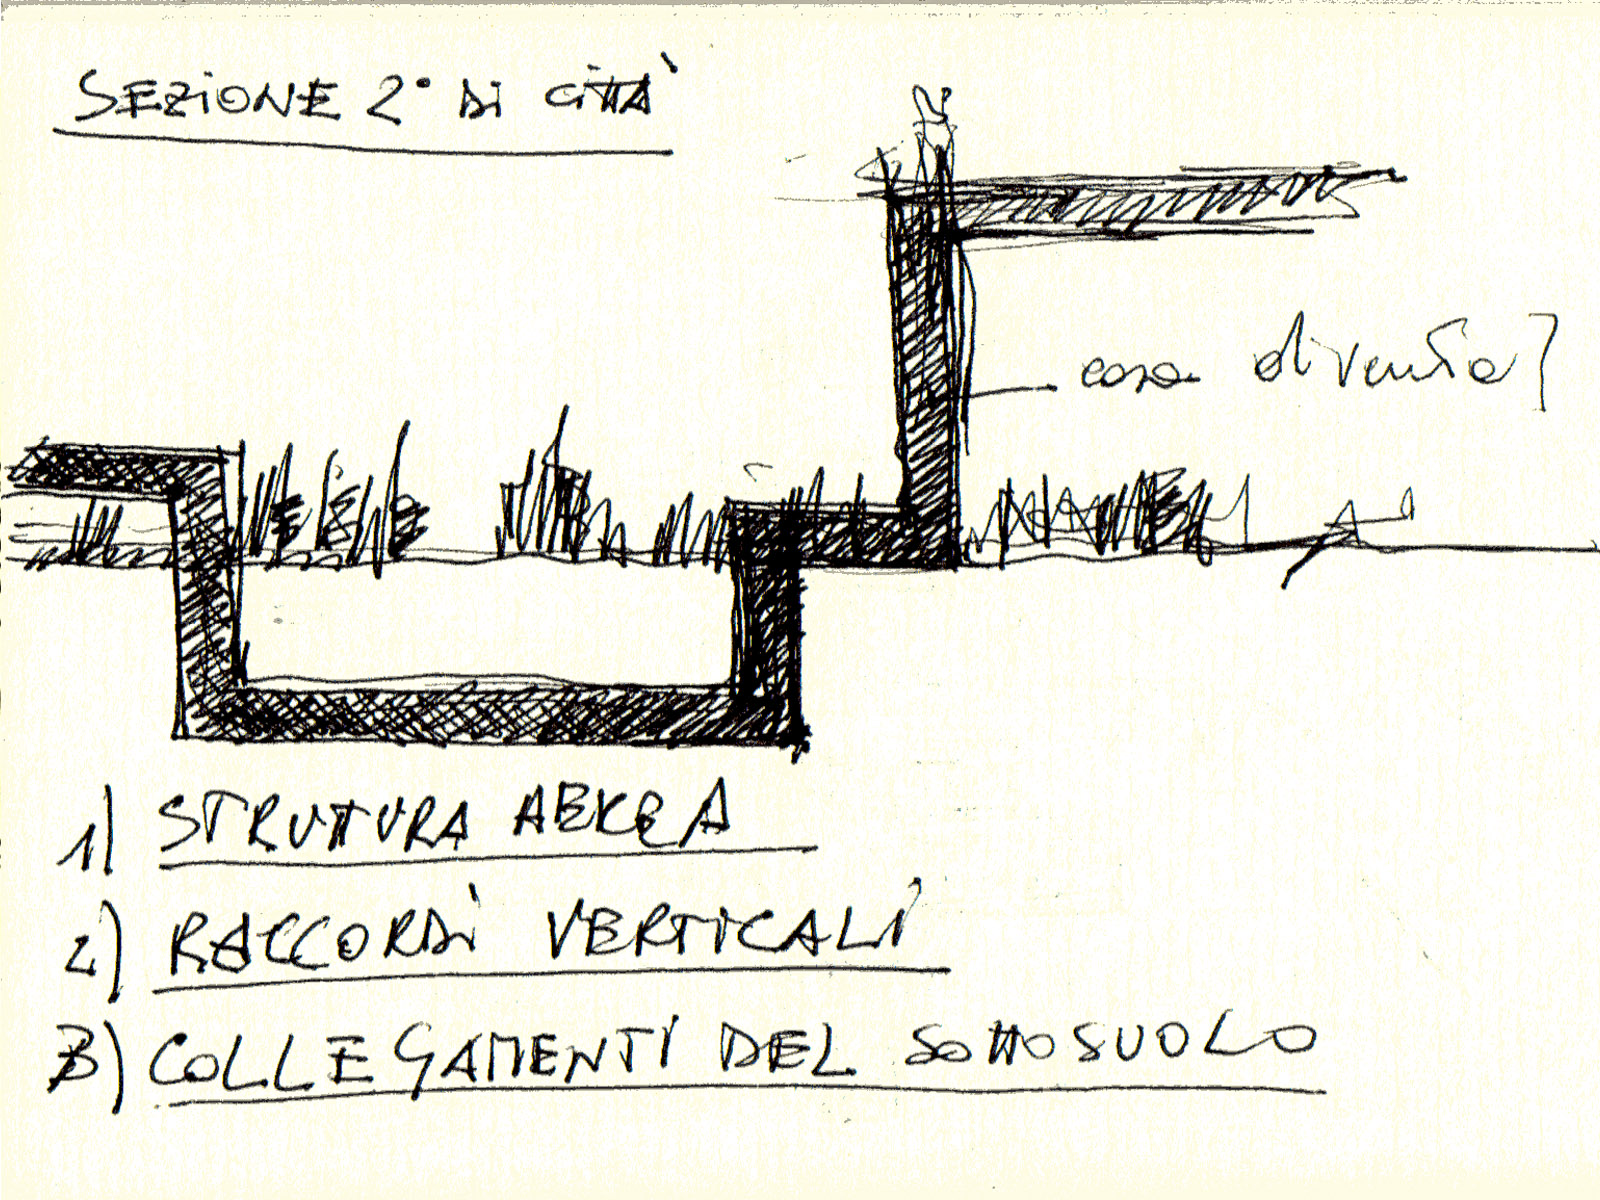 SEZiONE 2° Di CiTTÀ
cosa diventa?
1) STRUTTURA AEREA
2) RACCORDi VERTICALi
3) COLLEGAMENTI DEL SOTTOSUOLO